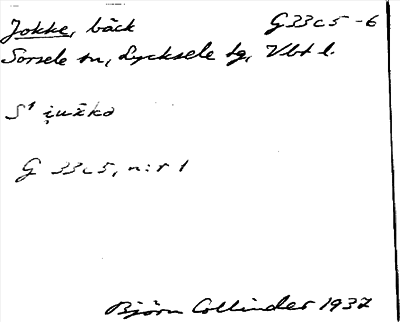 Jokke, bäck G33c5-6
Sorsele sn, Lycksele tg, Vbt l.
G 33c5, n:r 1
Björn Collinder 1937